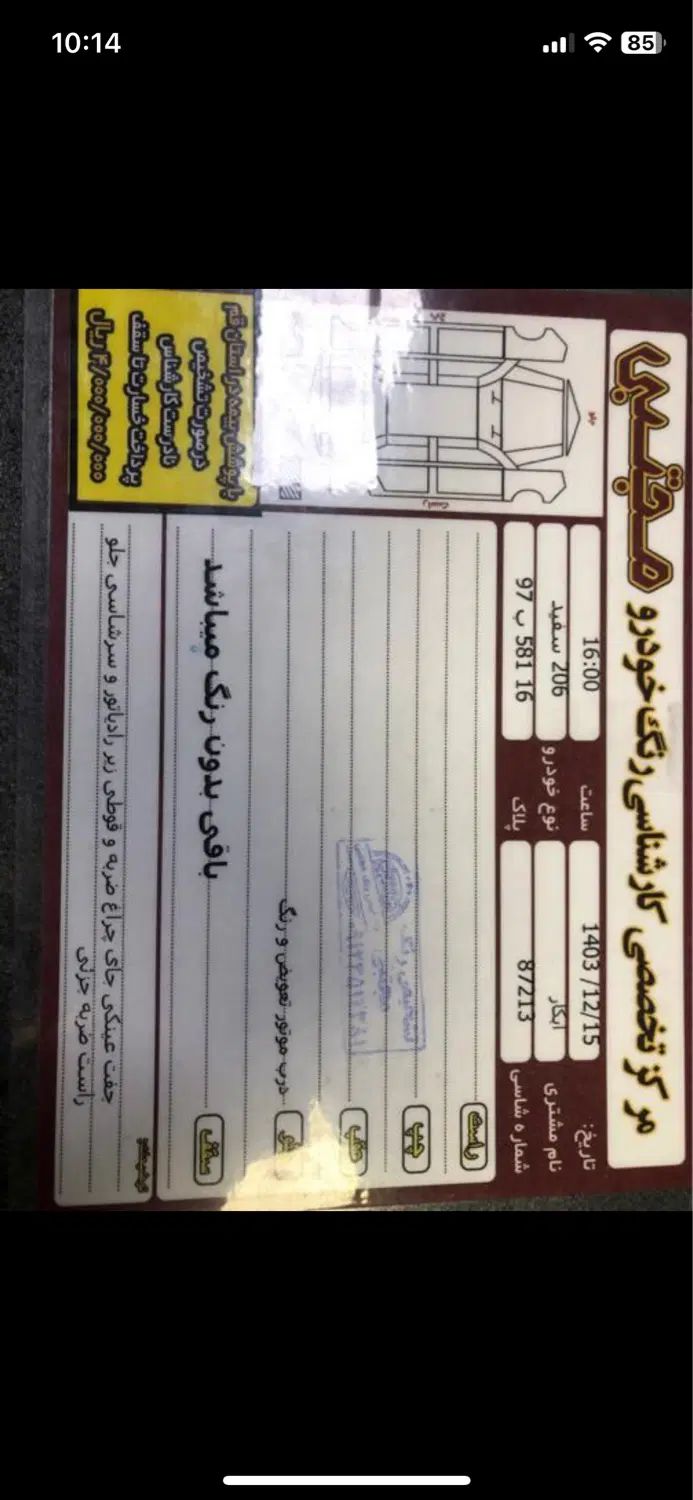 10:14
85
مرکز تخصصی کارشناسی رنگ خودرو مجتبی
تاریخ: 1403/12/15 ساعت 16:00
نام مشتری ابکار نوع خودرو 206 سفید
شماره شاسی 87213 پلاک 97 ب 581 16
جلو
چپ
راست
راست
چپ
عقب
درب موتور تعویض و رنگ
سقف
باقی بدون رنگ میباشد
جفت عینکی جای چراغ ضربه و قوطی زیر رادیاتور و سرشاسی جلو
راست ضربه جزئی
با پوشش بیمه در استان قم
درصورت تشخیص
نادرست کارشناس
پرداخت خسارت تا سقف
۴/۰۰۰/۰۰۰/۰۰۰ ریال